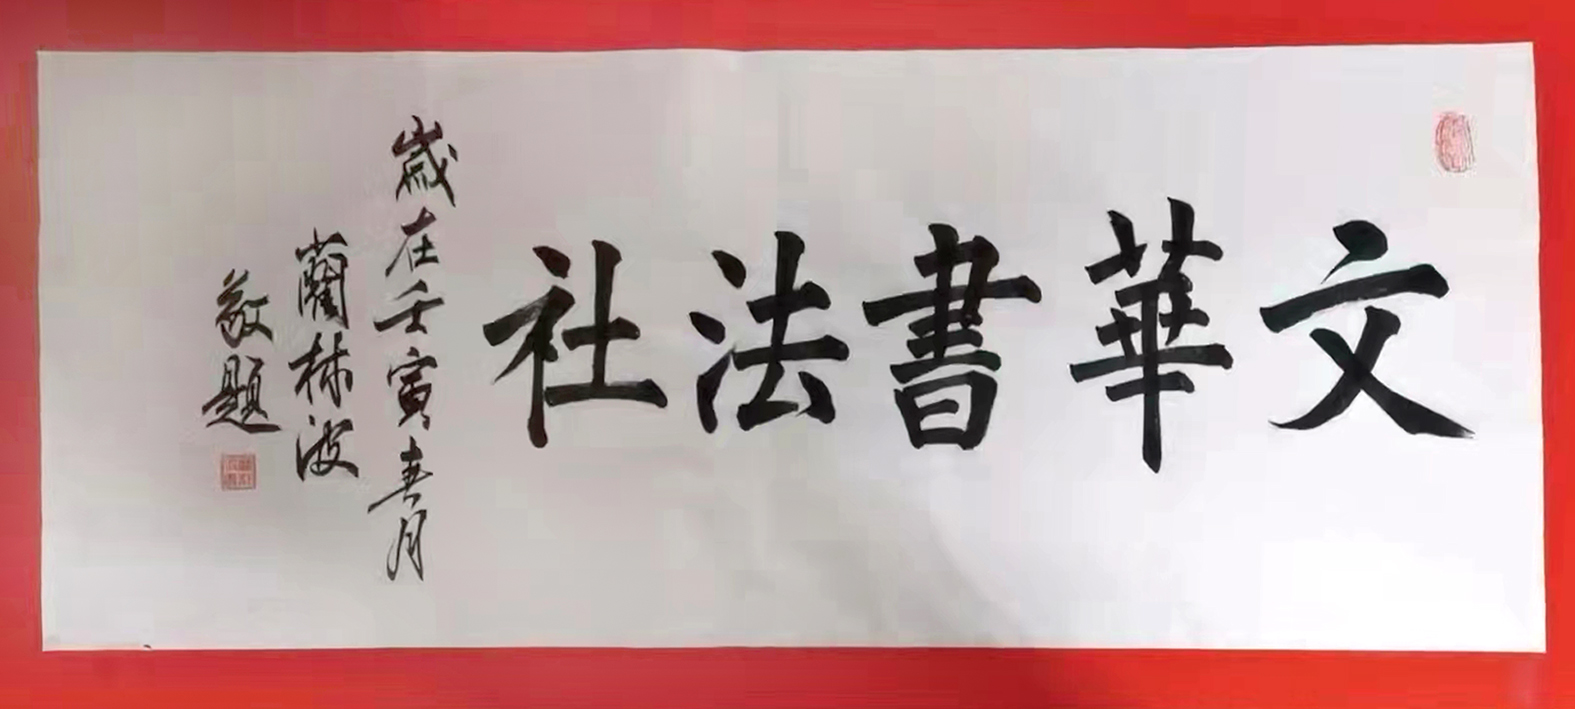 文華書法社
歲在壬寅春月
藺林波
敬題